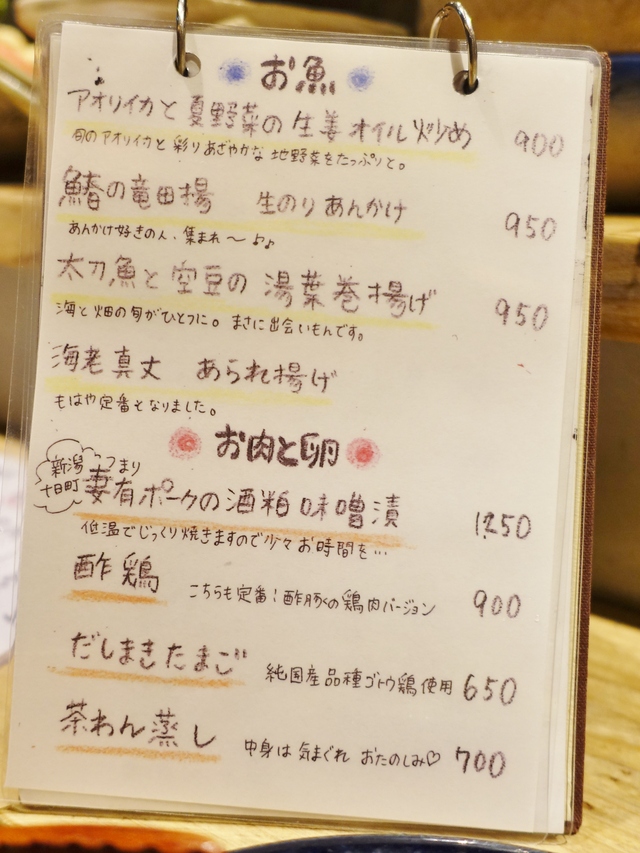 お魚
アオリイカと夏野菜の生姜オイル炒め 900
旬のアオリイカと彩りあざやかな地野菜をたっぷりと。
鰆の竜田揚 生のりあんかけ 950
あんかけ好きの人、集まれ〜♪♪
太刀魚と空豆の湯葉巻揚げ 950
海と畑の旬がひとつに。まさに出会いもんです。
海老真丈 あられ揚げ
もはや定番となりました。
お肉と卵
新潟十日町 つまり
妻有ポークの酒粕味噌漬 1250
低温でじっくり焼きますので少々お時間を…
酢鶏 こちらも定番!酢豚の鶏肉バージョン 900
だしまきたまご 純国産品種ゴトウ鶏使用 650
茶わん蒸し 中身は気まぐれ おたのしみ♡ 700